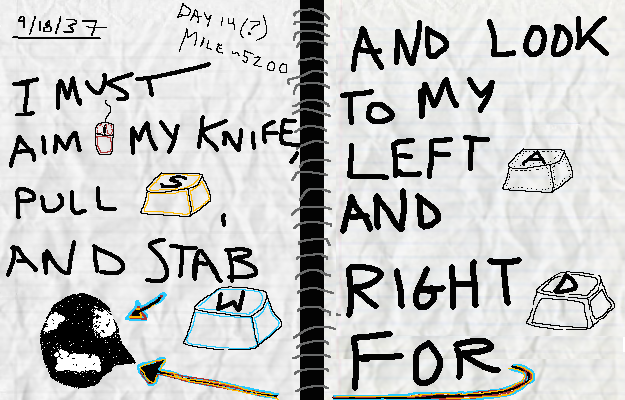 9/18/37
DAY 14(?)
MILE ~5200
I MUST
AIM MY KNIFE,
PULL S,
AND STAB
W
AND LOOK
TO MY
LEFT A
AND
RIGHT D
FOR